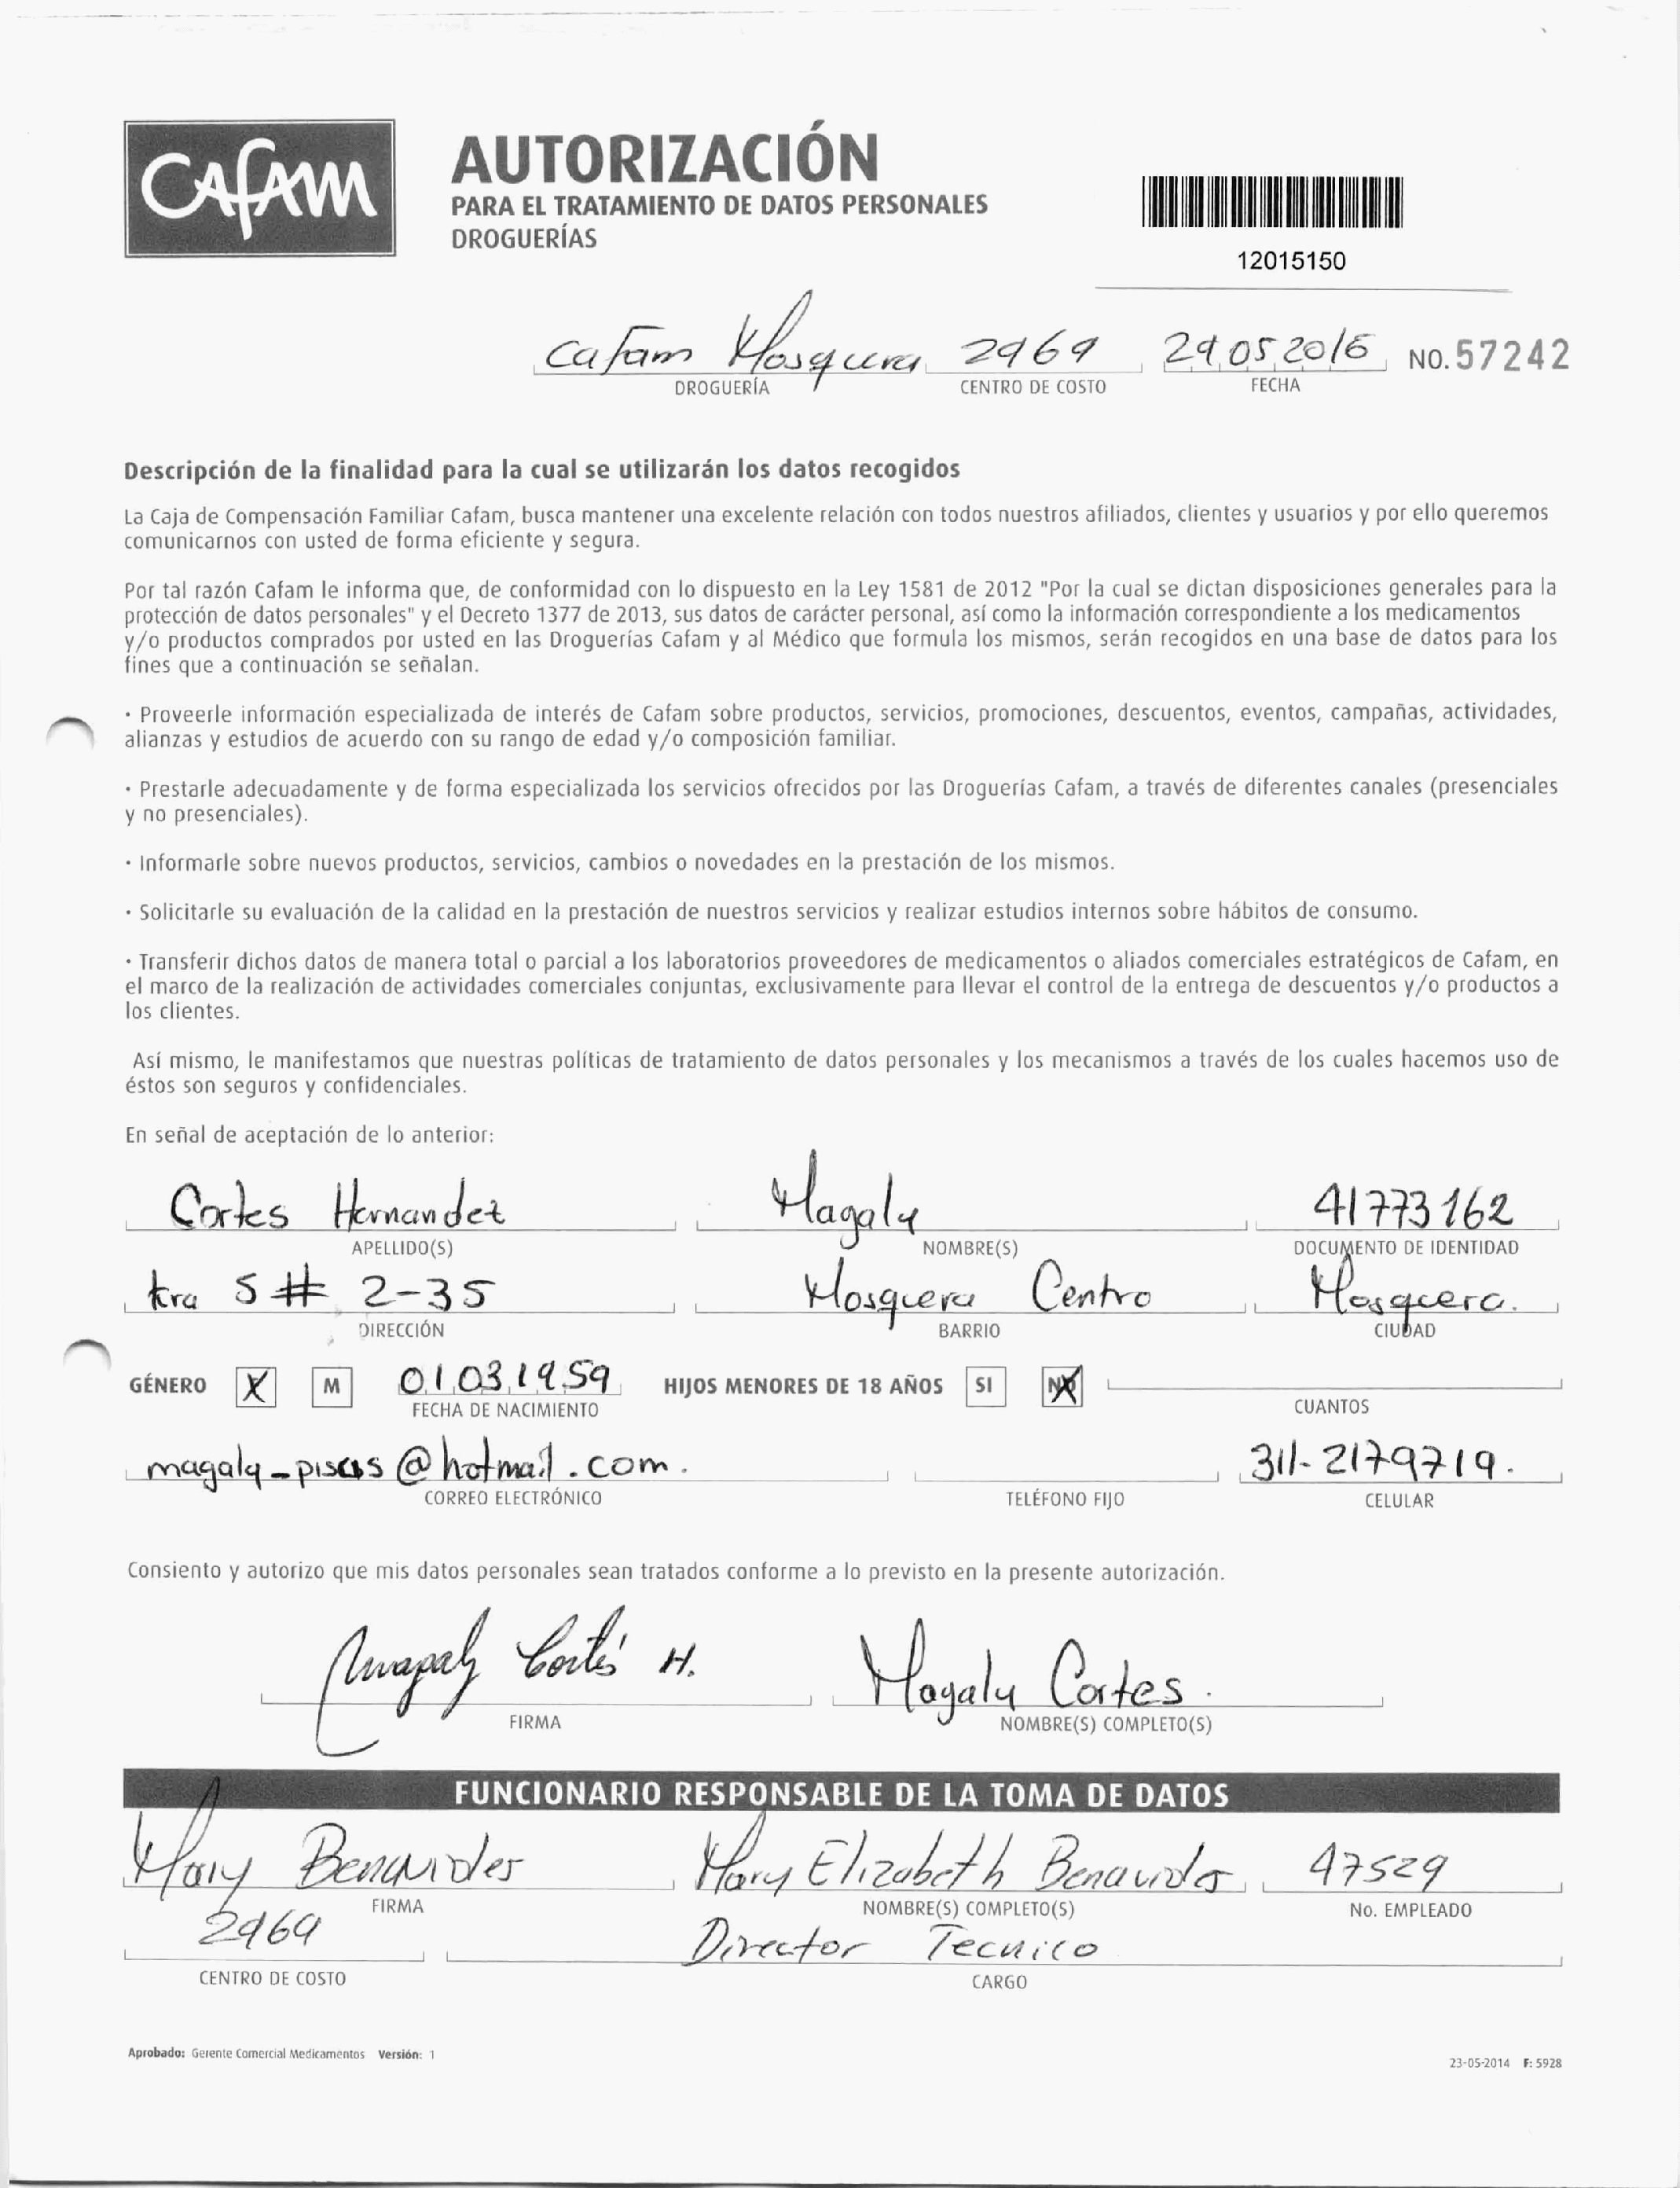 CAFAM
AUTORIZACIÓN
PARA EL TRATAMIENTO DE DATOS PERSONALES
DROGUERÍAS
12015150
Cafam Mosquera 2969 29 05 2016 NO. 57242
DROGUERÍA CENTRO DE COSTO FECHA
Descripción de la finalidad para la cual se utilizarán los datos recogidos
La Caja de Compensación Familiar Cafam, busca mantener una excelente relación con todos nuestros afiliados, clientes y usuarios y por ello queremos
comunicarnos con usted de forma eficiente y segura.
Por tal razón Cafam le informa que, de conformidad con lo dispuesto en la Ley 1581 de 2012 "Por la cual se dictan disposiciones generales para la
protección de datos personales" y el Decreto 1377 de 2013, sus datos de carácter personal, así como la información correspondiente a los medicamentos
y/o productos comprados por usted en las Droguerías Cafam y al Médico que formula los mismos, serán recogidos en una base de datos para los
fines que a continuación se señalan.
· Proveerle información especializada de interés de Cafam sobre productos, servicios, promociones, descuentos, eventos, campañas, actividades,
alianzas y estudios de acuerdo con su rango de edad y/o composición familiar.
· Prestarle adecuadamente y de forma especializada los servicios ofrecidos por las Droguerías Cafam, a través de diferentes canales (presenciales
y no presenciales).
· Informarle sobre nuevos productos, servicios, cambios o novedades en la prestación de los mismos.
· Solicitarle su evaluación de la calidad en la prestación de nuestros servicios y realizar estudios internos sobre hábitos de consumo.
· Transferir dichos datos de manera total o parcial a los laboratorios proveedores de medicamentos o aliados comerciales estratégicos de Cafam, en
el marco de la realización de actividades comerciales conjuntas, exclusivamente para llevar el control de la entrega de descuentos y/o productos a
los clientes.
Así mismo, le manifestamos que nuestras políticas de tratamiento de datos personales y los mecanismos a través de los cuales hacemos uso de
éstos son seguros y confidenciales.
En señal de aceptación de lo anterior:
Cortes Hernandez Magaly 41773162
APELLIDO(S) NOMBRE(S) DOCUMENTO DE IDENTIDAD
kra 5 # 2-35 Mosquera Centro Mosquera.
DIRECCIÓN BARRIO CIUDAD
GÉNERO X M 01 03 1959 HIJOS MENORES DE 18 AÑOS SI NO X
FECHA DE NACIMIENTO CUANTOS
magaly_piscis@hotmail.com. 311-2179719.
CORREO ELECTRÓNICO TELÉFONO FIJO CELULAR
Consiento y autorizo que mis datos personales sean tratados conforme a lo previsto en la presente autorización.
Magaly Cortés H. Magaly Cortes.
FIRMA NOMBRE(S) COMPLETO(S)
FUNCIONARIO RESPONSABLE DE LA TOMA DE DATOS
Mary Benavides Mary Elizabeth Benavides 47529
FIRMA NOMBRE(S) COMPLETO(S) No. EMPLEADO
2969 Director Tecnico
CENTRO DE COSTO CARGO
Aprobado: Gerente Comercial Medicamentos Versión: 1
23-05-2014 F: 5928